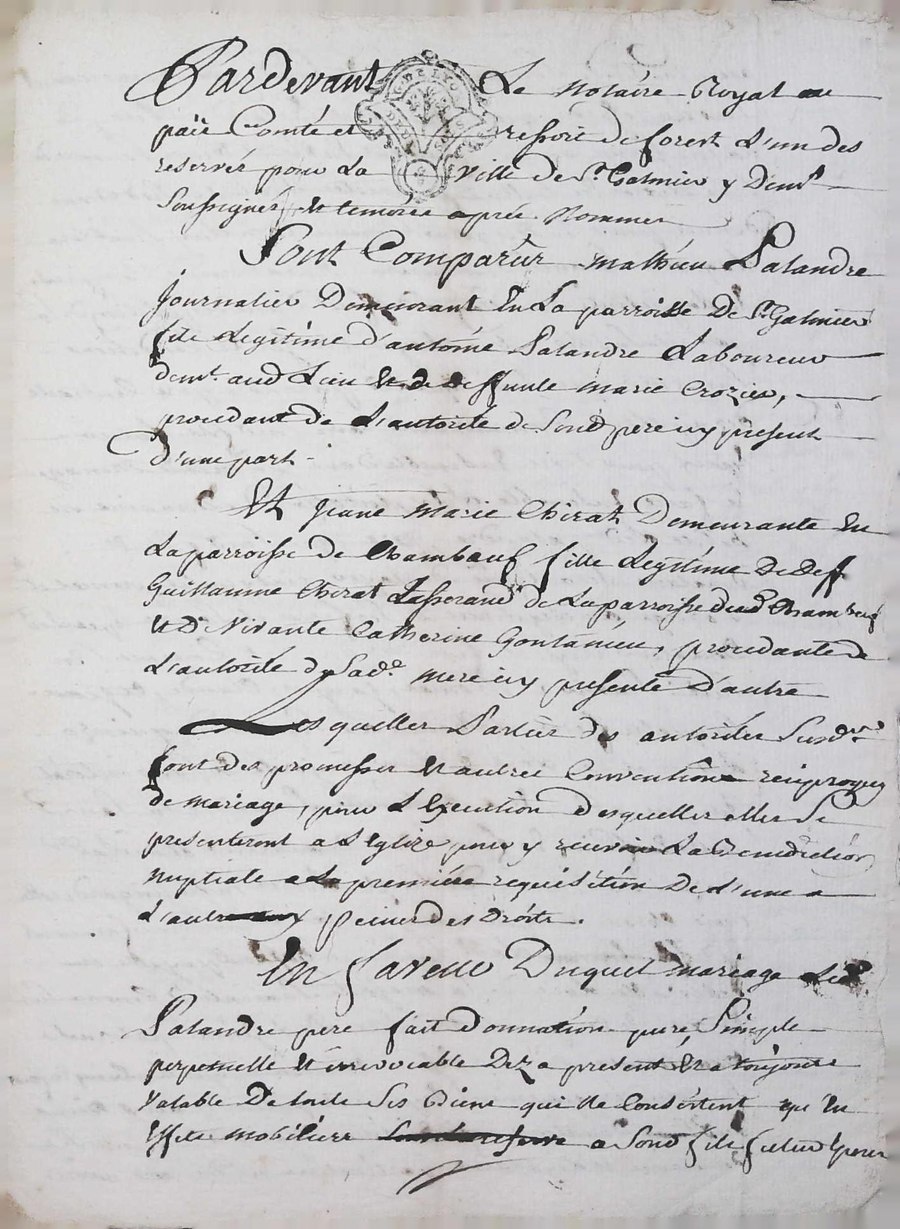 Pardevant Le Notaire Royal au
païs Comté et ressort de forest L'un des
reservés pour La ville de St Galmier y demt
Soussigné, et temoins après Nommes
Sont Comparus mathieu Lalandre
Journalier Demeurant en La parroisse De St Galmier
fils Legitime d'antoine Lalandre Laboureur
demt aud Lieu et de deffunte marie Crozier,
procedant de L'autorité de Sond pere icy present
D'une part
Et jeanne marie Chirat Demeurante En
La parroisse de Chambœuf fille Legitime De Deff
Guillaume Chirat de La parroisse dud Chambœuf
et De Vivante Catherine Gontanieu, procedante de
L'autorité de Sade mere icy presente D'autre
Lesquelles Parties des autorités Susd
font des promesses et autres Conventions reciproques
de mariage, pour L'Execution desquelles elles Se
presenteront a L'Eglize pour y recevoir La Benediction
Nuptiale a La premiere requisition De L'une a
L'autre peines des Droits.
En faveur Duquel mariage Led
Lalandre pere fait Donnation pure, Simple
perpetuelle et irrevocable Dez a present et a toujours
Valable De touts Ses Biens qui ne Consistent que En
Effets mobiliers a Sond fils futur Epoux